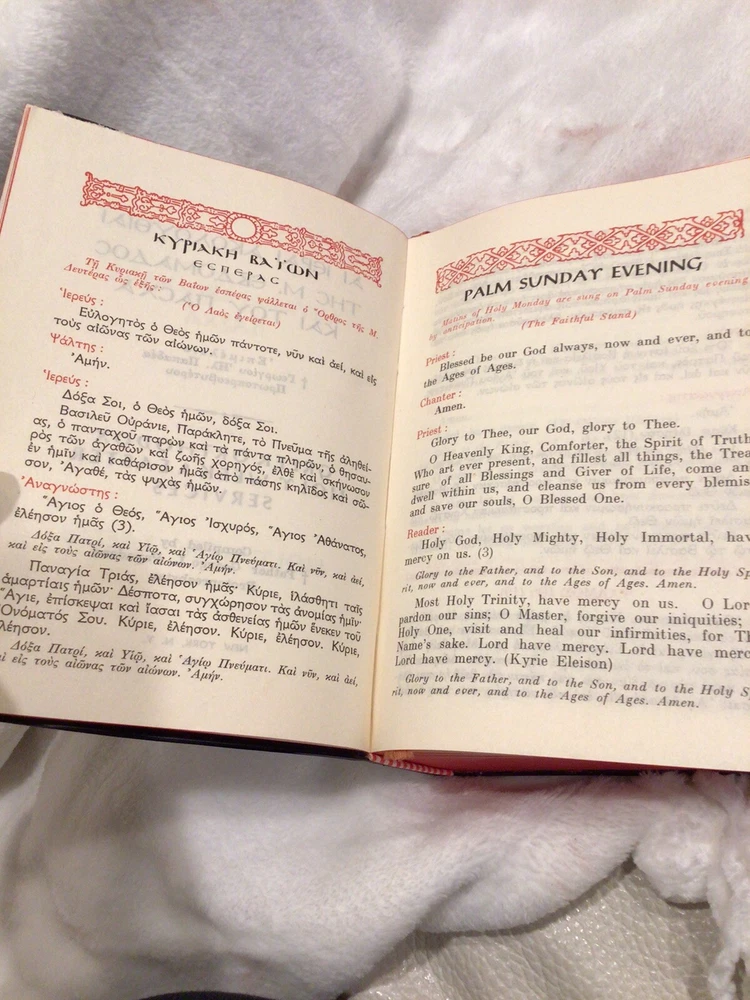 ΚΥΡΙΑΚΗ ΒΑΪΩΝ
ΕΣΠΕΡΑΣ
Τῇ Κυριακῇ τῶν Βαΐων ἑσπέρας ψάλλεται ὁ Ὄρθρος τῆς Μ.
Δευτέρας ὡς ἑξῆς: (Ὁ Λαὸς ἐγείρεται)
Ἱερεύς:
Εὐλογητὸς ὁ Θεὸς ἡμῶν πάντοτε, νῦν καὶ ἀεί, καὶ εἰς
τοὺς αἰῶνας τῶν αἰώνων.
Ψάλτης:
Ἀμήν.
Ἱερεύς:
Δόξα Σοι, ὁ Θεὸς ἡμῶν, δόξα Σοι.
Βασιλεῦ Οὐράνιε, Παράκλητε, τὸ Πνεῦμα τῆς ἀληθεί-
ας, ὁ πανταχοῦ παρὼν καὶ τὰ πάντα πληρῶν, ὁ θησαυ-
ρὸς τῶν ἀγαθῶν καὶ ζωῆς χορηγός, ἐλθὲ καὶ σκήνωσον
ἐν ἡμῖν καὶ καθάρισον ἡμᾶς ἀπὸ πάσης κηλῖδος καὶ σῶ-
σον, Ἀγαθέ, τὰς ψυχὰς ἡμῶν.
Ἀναγνώστης:
Ἅγιος ὁ Θεός, Ἅγιος Ἰσχυρός, Ἅγιος Ἀθάνατος,
ἐλέησον ἡμᾶς (3).
Δόξα Πατρί, καὶ Υἱῷ, καὶ Ἁγίῳ Πνεύματι. Καὶ νῦν, καὶ ἀεί,
καὶ εἰς τοὺς αἰῶνας τῶν αἰώνων. Ἀμήν.
Παναγία Τριάς, ἐλέησον ἡμᾶς· Κύριε, ἱλάσθητι ταῖς
ἁμαρτίαις ἡμῶν· Δέσποτα, συγχώρησον τὰς ἀνομίας ἡμῖν·
Ἅγιε, ἐπίσκεψαι καὶ ἴασαι τὰς ἀσθενείας ἡμῶν ἕνεκεν τοῦ
Ὀνόματός Σου. Κύριε, ἐλέησον. Κύριε, ἐλέησον. Κύριε,
λέησον.
Δόξα Πατρί, καὶ Υἱῷ, καὶ Ἁγίῳ Πνεύματι. Καὶ νῦν, καὶ ἀεί,
αὶ εἰς τοὺς αἰῶνας τῶν αἰώνων. Ἀμήν.
PALM SUNDAY EVENING
Matins of Holy Monday are sung on Palm Sunday evening
by anticipation. (The Faithful Stand)
Priest:
Blessed be our God always, now and ever, and to
the Ages of Ages.
Chanter:
Amen.
Priest:
Glory to Thee, our God, glory to Thee.
O Heavenly King, Comforter, the Spirit of Truth
Who art ever present, and fillest all things, the Trea
sure of all Blessings and Giver of Life, come an
dwell within us, and cleanse us from every blemis
and save our souls, O Blessed One.
Reader:
Holy God, Holy Mighty, Holy Immortal, hav
mercy on us. (3)
Glory to the Father, and to the Son, and to the Holy Sp
rit, now and ever, and to the Ages of Ages. Amen.
Most Holy Trinity, have mercy on us. O Lor
pardon our sins; O Master, forgive our iniquities;
Holy One, visit and heal our infirmities, for Th
Name's sake. Lord have mercy. Lord have merc
Lord have mercy. (Kyrie Eleison)
Glory to the Father, and to the Son, and to the Holy S
rit, now and ever, and to the Ages of Ages. Amen.